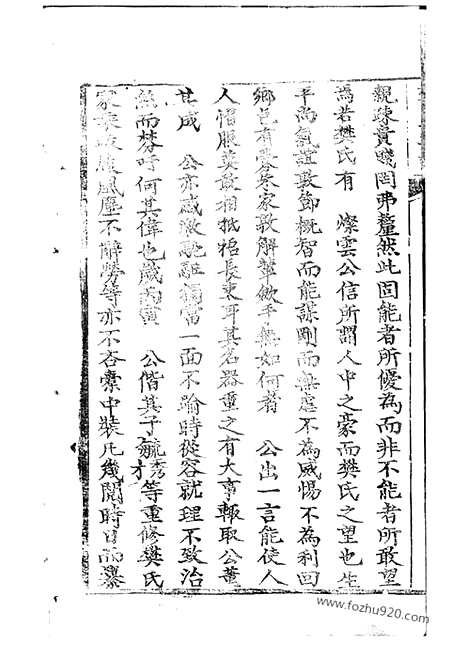 親疎貴賤罔弗釐然此固能者所優為而非不能者所敢望
為若樊氏有 燦雲公信所謂人中之豪而樊氏之望也生
平尚氣誼敦節概智而能謀剛而無虐不為威惕不為利回
鄉邑有雀朱家敦解莘斂手無如何者 公出一言能使人
人懾服莫敢相抵梧長吏耳其名器重之有大事輒取公董
其成 公亦感激馳驅獨當一面不踰時從容就理不致治
絲而棼吁何其偉也歲丙寅 公偕其子毓秀才等重修樊氏
家乘跋履風塵不辭勞等亦不吝橐中裝凡幾閱時日而纂
www.fozhu920.com